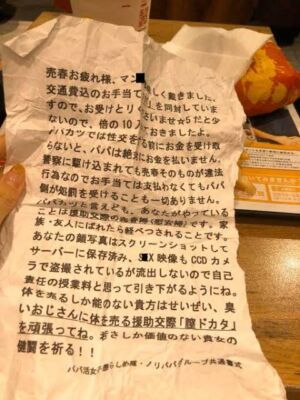 売春お疲れ様、マン■
交通費込のお手当て
すので、お受けとり
ないので、倍の10
おきましたよ。
パパカツでは性交を
前にお金を受け取
らないと、パパは絶対にお金を払いません。
警察に駆け込まれても売春そのものが違法
行為なのでお手当ては支払わなくてもパパ
側が処罰を受けることも一切ありません。
パパカツと言えども、あなたがやっている
ことは援助交際の
です。家
族・友人にばれたら軽べつされることです。
あなたの顔写真はスクリーンショットして
サーバーに保存済み、S■X映像もCCDカメ
ラで盗撮されているが流出しないので自己
責任の授業料と思って引き下がるようにね。
体を売るしか能のない貴方はせいぜい、臭
いおじさんに体を売る援助交際「膣ドカタ」
を頑張ってね。若さしか価値のない貴女の
健闘を祈る！！
パパ活女子懲らしめ隊・ノリパパグループ共通書式